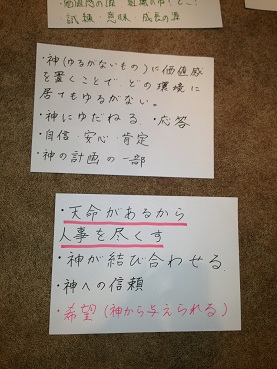 試練・意味・成長の源
・神(ゆるがないもの)に価値感
を置くことで どの環境に
居てもゆるがない。
・神にゆだねる ・応答
・自信・安心・肯定
・神の計画の一部
・天命があるから
人事を尽くす
・神が結び合わせる
・神への信頼
・希望(神から与えられる)